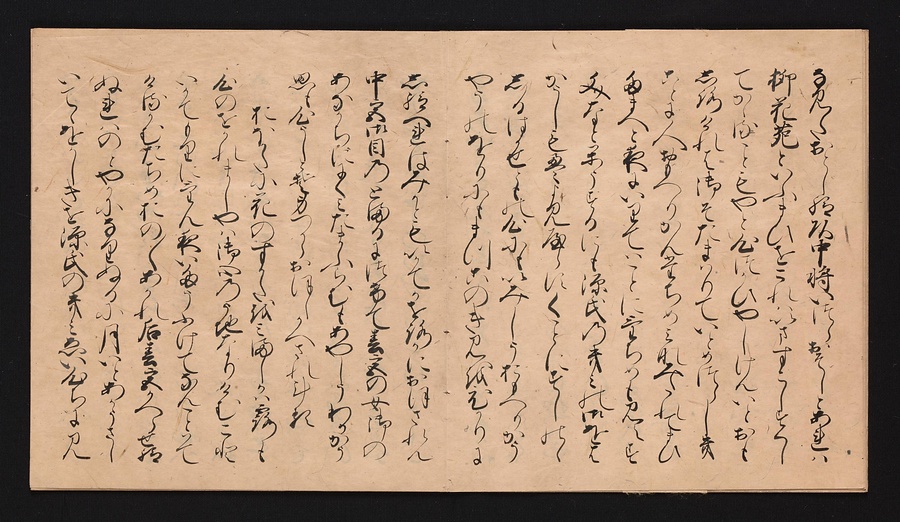 なみたおとし給頭中将いつらおそしとあれは
柳花苑といふまひをこれはいますこしすくし
てかゝることもやと心つかひやしけんいとおも
しろけれは御そたまはりていとめつらしき
ことに人おもへりかんたちめみなみたれてまひ
たまへと夜にいりてはことにけちめも見えす
文なとかうするにも源氏の君の御をは
かうしもえよみやらすくことにすしのゝ
しるはかせともの心にもいみしうおもへりかう
やうのをりにもまつこのきみを光に
し給へれはみかともいかてかをろかにおほされん
中宮御目のとまるにつけて春宮の女御の
あなかちににくみたまふらむもあやしうわかかう
思も心うしとそみつからおほしかへされける
おほかたに花のすかたをみましかは露も
心のをかれましや御心の中なりけむこと
いかてもりにけん夜いたうふけてなんことはて
けるかむたちめおの〳〵あかれ后春宮かへらせ給
ぬれはのとやかになりぬるに月いとあかうさし
いてゝをかしきを源氏の君ゑい心ちに見